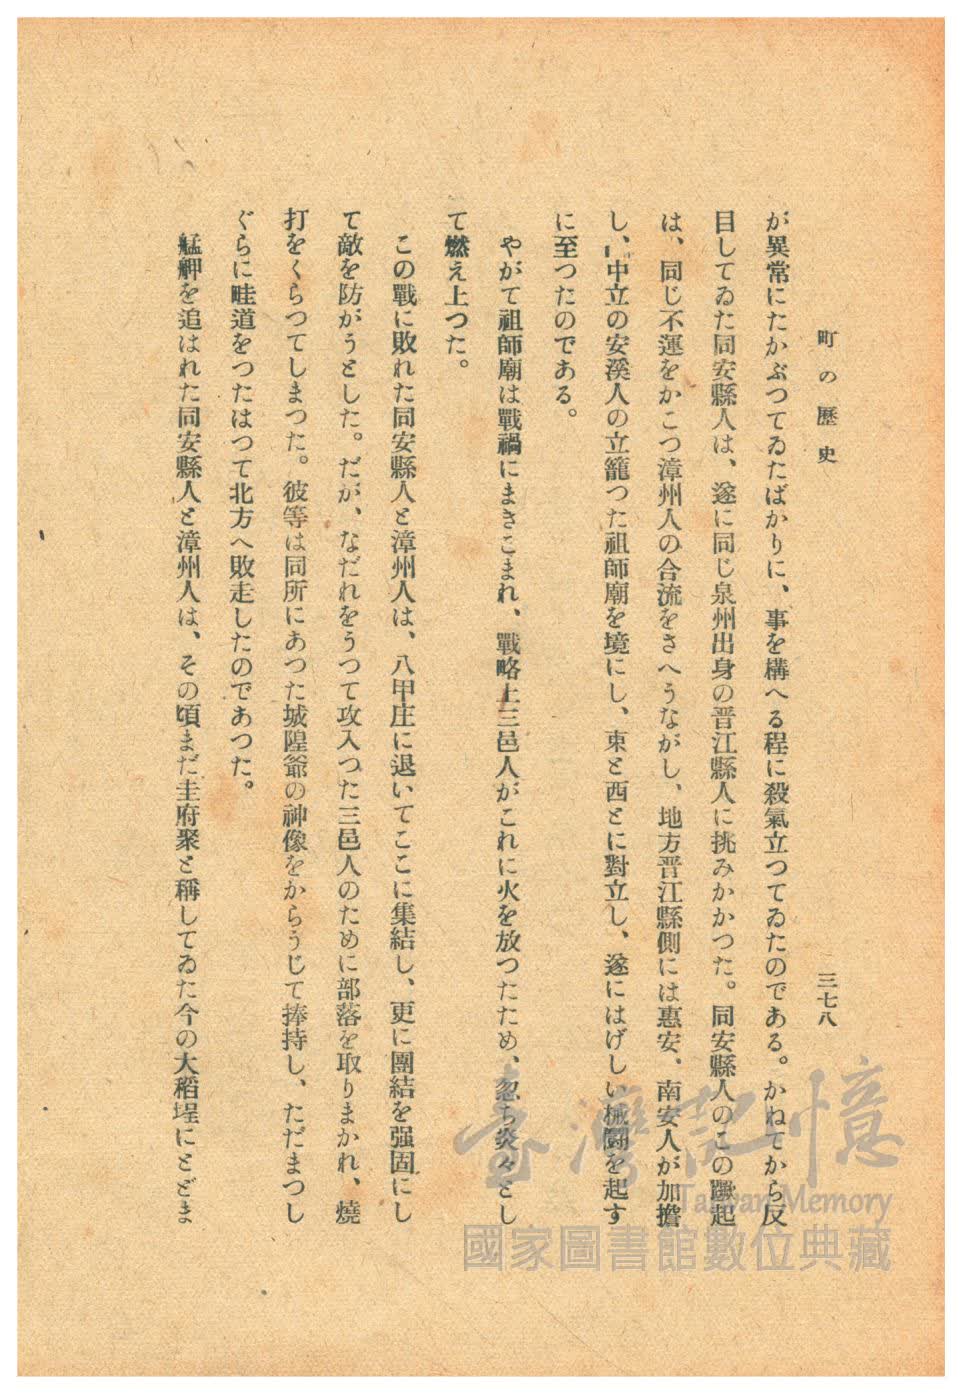 町の歷史
三七八
が異常にたかぶつてゐたばかりに、事を構へる程に殺氣立つてゐたのである。かねてから反
目してゐた同安縣人は、遂に同じ泉州出身の晋江縣人に挑みかかつた。同安縣人のこの蹶起
は、同じ不運をかこつ漳州人の合流をさへうながし、地方晋江縣側には惠安、南安人が加擔
し、中立の安溪人の立籠つた祖師廟を境にし、東と西とに對立し、遂にはげしい械鬪を起す
に至つたのである。
やがて祖師廟は戰禍にまきこまれ、戰略上三邑人がこれに火を放つたため、忽ち炎々とし
て燃え上つた。
この戰に敗れた同安縣人と漳州人は、八甲庄に退いてここに集結し、更に團結を强固にし
て敵を防がうとした。だが、なだれをうつて攻入つた三邑人のために部落を取りまかれ、燒
打をくらつてしまつた。彼等は同所にあつた城隍爺の神像をからうじて捧持し、ただまつし
ぐらに畦道をつたはつて北方へ敗走したのであつた。
艋舺を追はれた同安縣人と漳州人は、その頃まだ圭府聚と稱してゐた今の大稻埕にとどま
臺灣記憶
Taiwan Memory
國家圖書館數位典藏